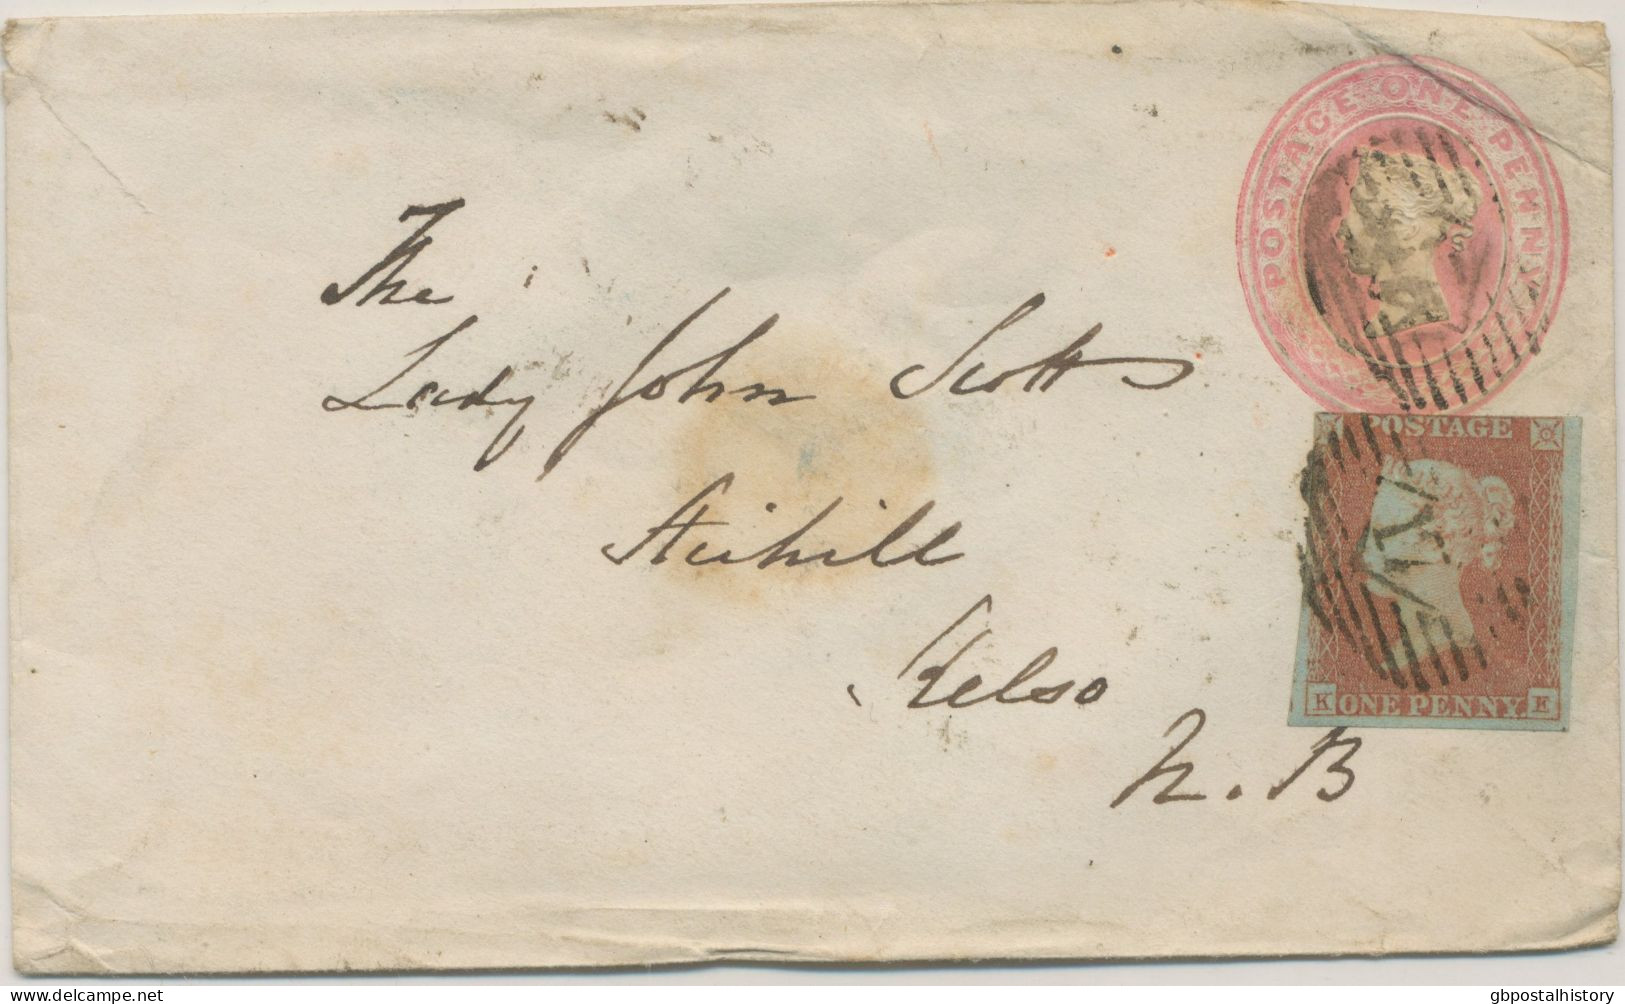 POSTAGE ONE PENNY
The
Lady John Scott
Stichill
Kelso
N.B
POSTAGE
K ONE PENNY. K
gbpostalhistory